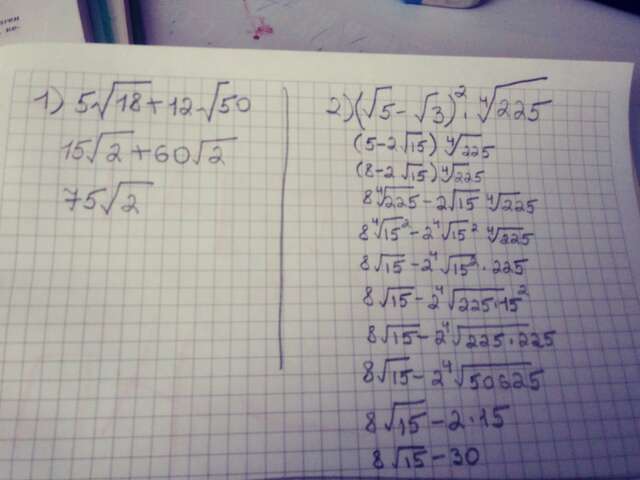 1) 5√18 + 12√50
15√2 + 60√2
75√2
2) (√5 - √3)² · ∜225
(5 - 2√15) ∜225
(8 - 2√15) ∜225
8∜225 - 2√15 ∜225
8∜15² - 2∜15² ∜225
8√15 - 2∜15² · 225
8√15 - 2∜225 · 15²
8√15 - 2∜225 · 225
8√15 - 2∜50625
8√15 - 2 · 15
8√15 - 30